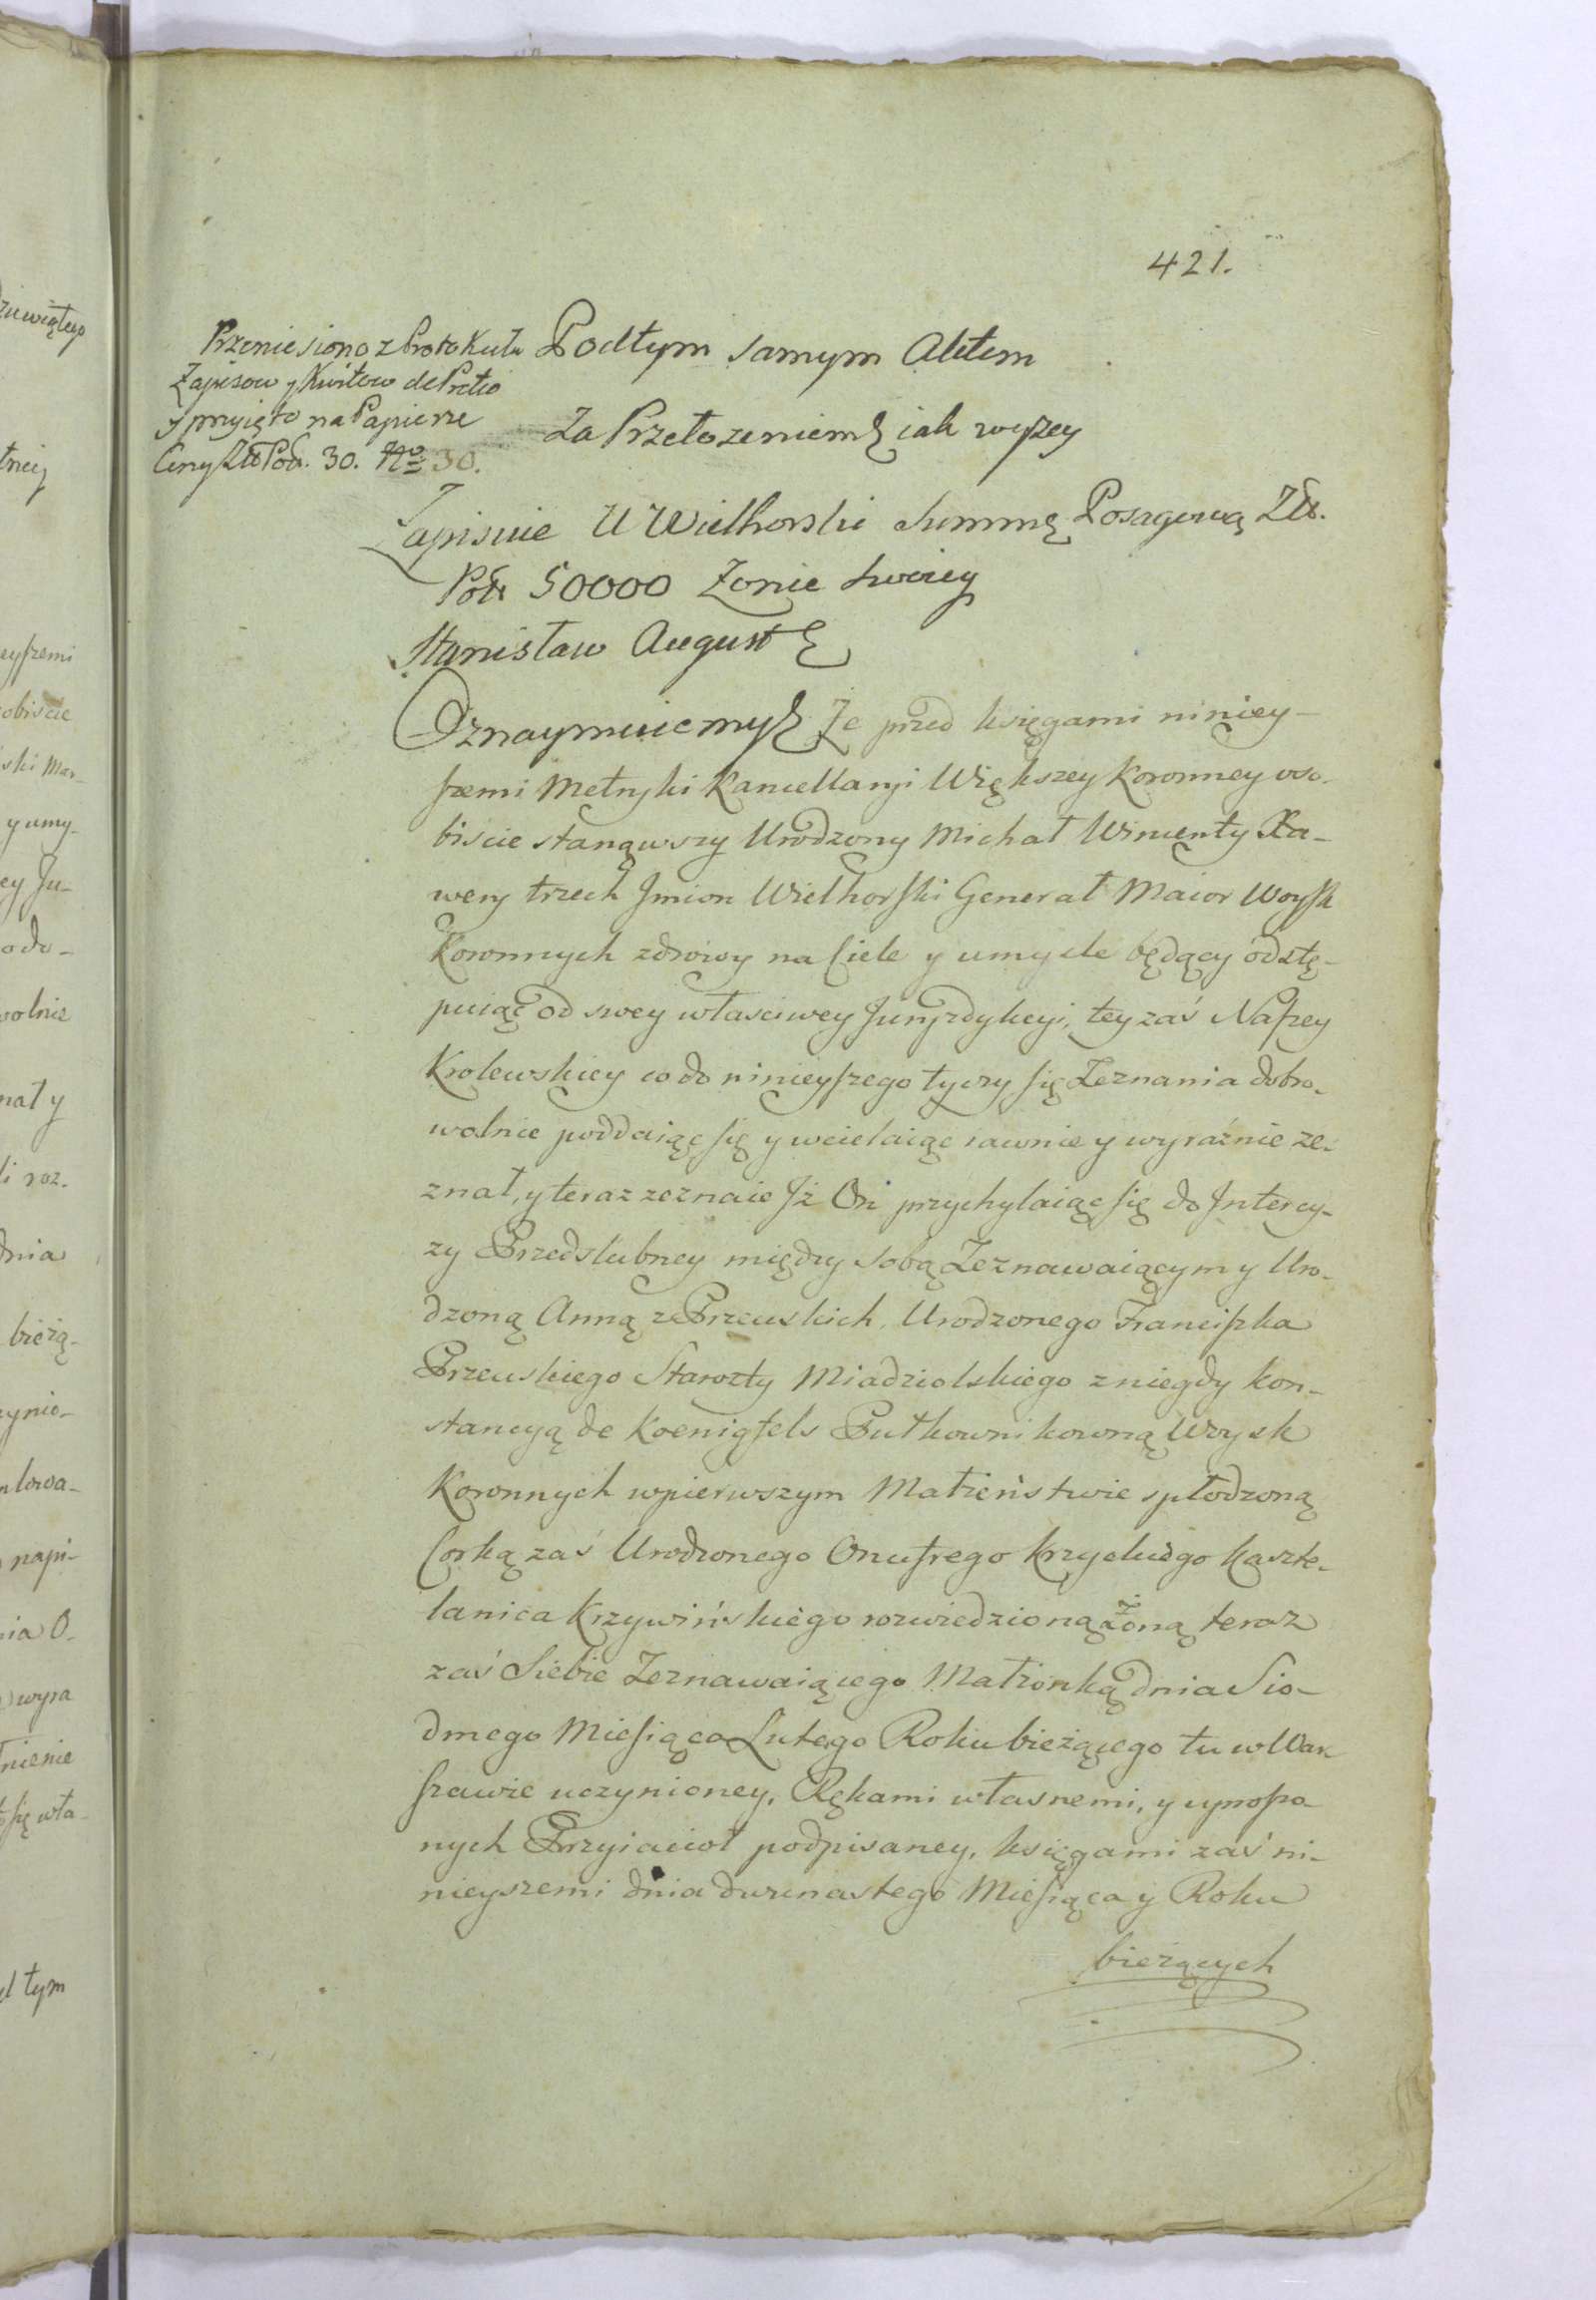 421.
Przeniesiono z Protokułu
Zapisow y Kwitow de Pretio
y przyięto na Papierze
Ceny Złł Pol. 30. No 30.
Pod tym samym Aktem
Za Przełożeniem jak wyżey
Zapisuie U Wielhorski Summę Posagową Zł.
Pol. 50000 Żonie Swoiey
Stanisław August
Oznaymuiemy Że przed księgami niniey-
szemi Metryki Kancellaryi Większey Koronney oso-
biście stanąwszy Urodzony Michał Wincenty Xa-
wery trzech Jmion Wielhorski Generał Maior Woysk
Koronnych zdrowy na Ciele y umyśle będący odstę-
puiąc od swey właściwey Juryzdykcyi, tey zaś Naszey
Krolewskiey co do ninieyszego tyczy się Zeznania dobro-
wolnie poddaiąc się y wcielaiąc iawnie y wyraźnie ze-
znał, y teraz zeznaie Jż On przychylaiąc się do Intercy-
zy Przedslubney między sobą Zeznawaiącym y Uro-
dzoną Anną z Przeuskich, Urodzonego Franciszka
Przeuskiego Starosty Miadziolskiego z niegdy Kon-
stancyą de Koenigfels Pułkownikowną Woysk
Koronnych w pierwszym Małżeństwie spłodzoną
Corką zaś Urodzonego Onufrego Krzyckiego Kaszte-
lanica Krzywińskiego rozwiedzioną Żoną teraz
zaś Siebie Zeznawaiącego Małżonką dnia Sio-
dmego Miesiąca Lutego Roku bieżącego tu w War-
szawie uczynioney, Rękami własnemi, y uproszo-
nych Przyiacioł podpisaney, księgami zaś ni-
nieyszemi dnia dwunastego Miesiąca y Roku
bieżących